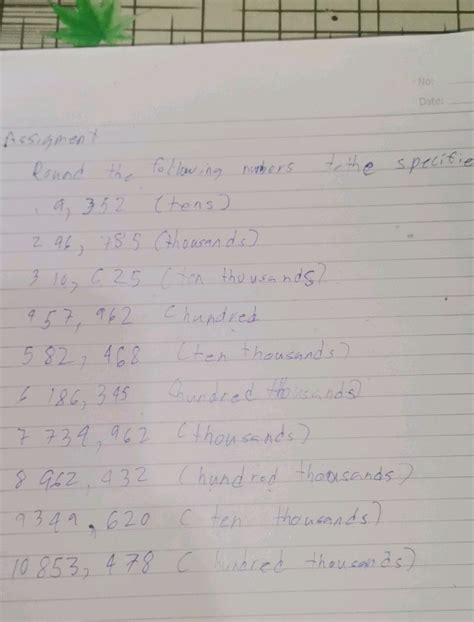 No:
Date:
Assigment
Round the following numbers to the specifie
. 9, 352 (tens)
2 96, 785 (thousands)
3 10, 625 (ten thousands)
4 57, 962 (hundred
5 82, 468 (ten thousands)
6 186, 345 (hundred thousands)
7 739, 962 (thousands)
8 962, 432 (hundred thousands)
9 349, 620 ( ten thousands)
10 853, 478 ( hundred thousands)